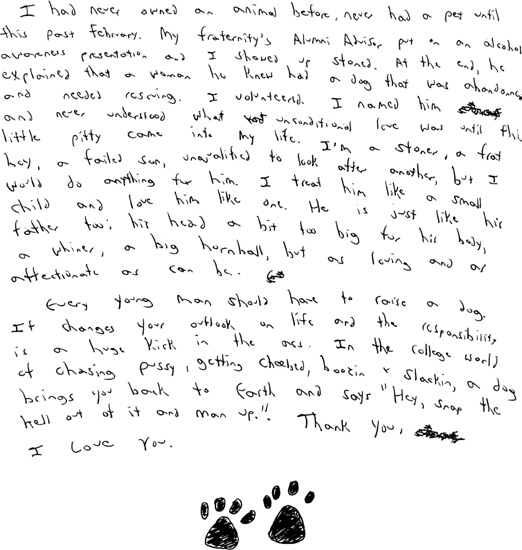 I had never owned an animal before, never had a pet until
this past February. My fraternity's Alumni Advisor put on an alcohol
awareness presentation and I showed up stoned. At the end, he
explained that a woman he knew had a dog that was abandoned
and needed rescuing. I volunteered. I named him
and never understood what unconditional love was until this
little pitty came into my life. I'm a stoner, a frat
boy, a failed son, unqualified to look after another, but I
would do anything for him. I treat him like a small
child and love him like one. He is just like his
father too; his head a bit too big for his body,
a whiner, a big hornball, but as loving and as
affectionate as can be.
Every young man should have to raise a dog.
It changes your outlook on life and the responsibility
is a huge kick in the ass. In the college world
of chasing pussy, getting cheebed, boozin & slackin, a dog
brings you back to Earth and says "Hey, snap the
hell out of it and man up.". Thank you,
I Love You.